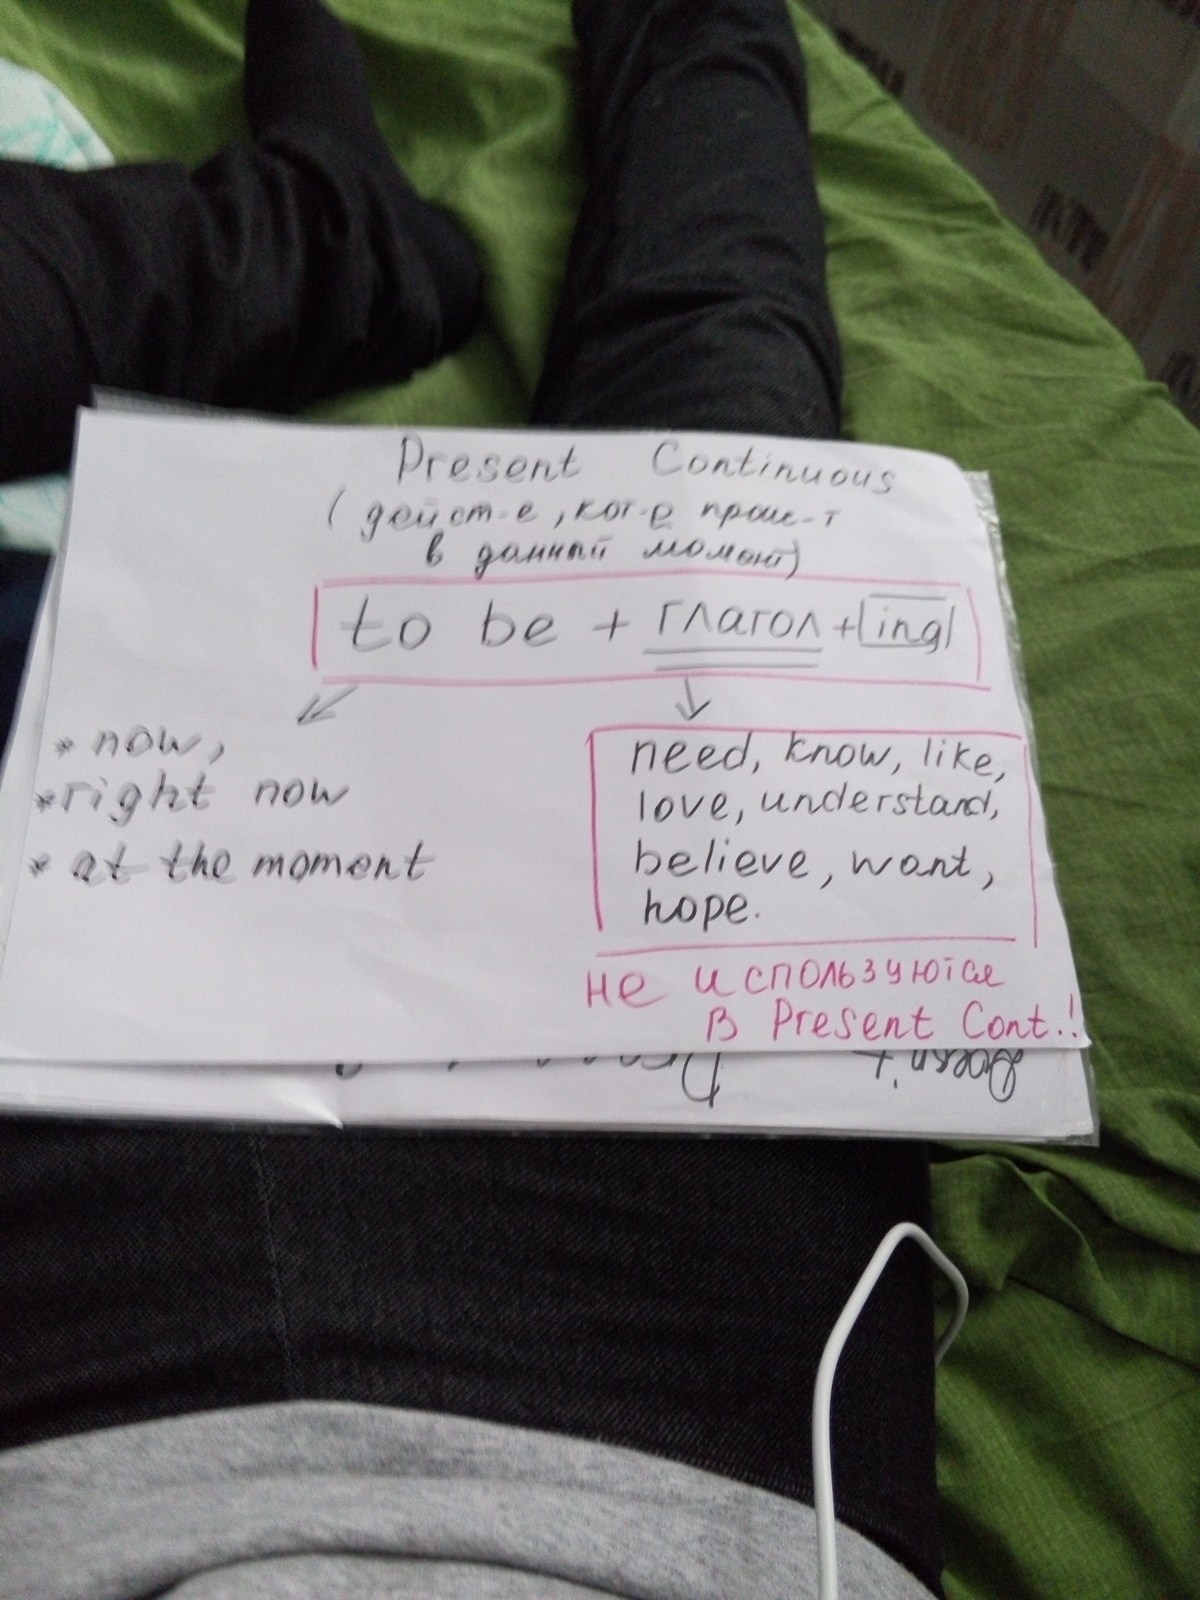 Present Continuous
(дейст-е, кот-е проис-т
в данный момент)
to be + глагол + ing
* now,
* right now
* at the moment
need, know, like,
love, understand,
believe, want,
hope.
не используются
в Present Cont.!
Doesn't